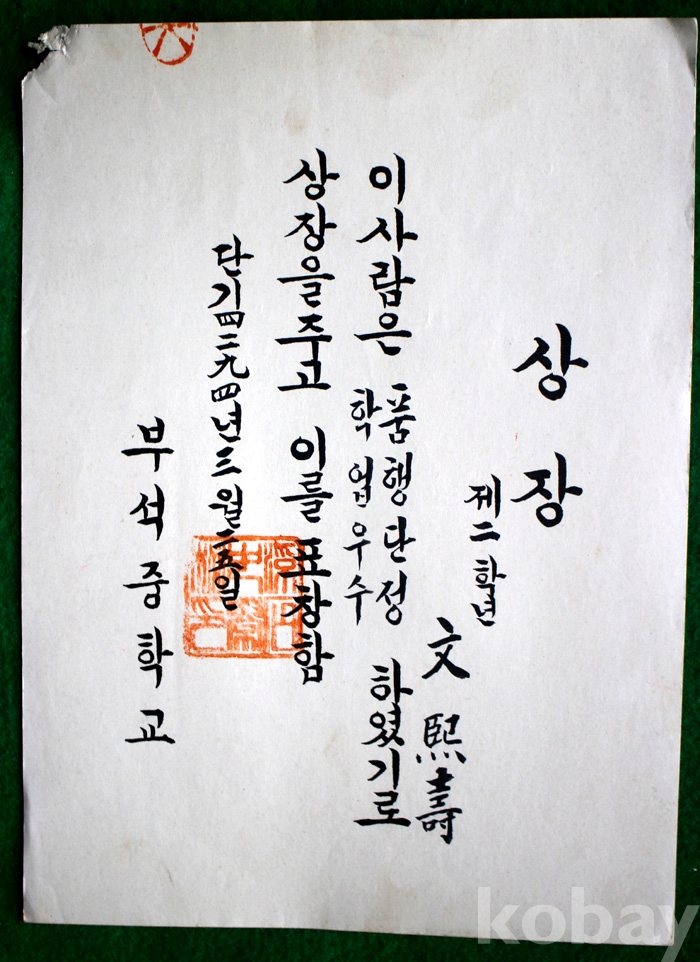 상장
제二학년
文熙壽
이사람은 품행단정
학업우수 하였기로
상장을주고 이를표창함
단기四二九四년三월二五일
부석중학교
kobay